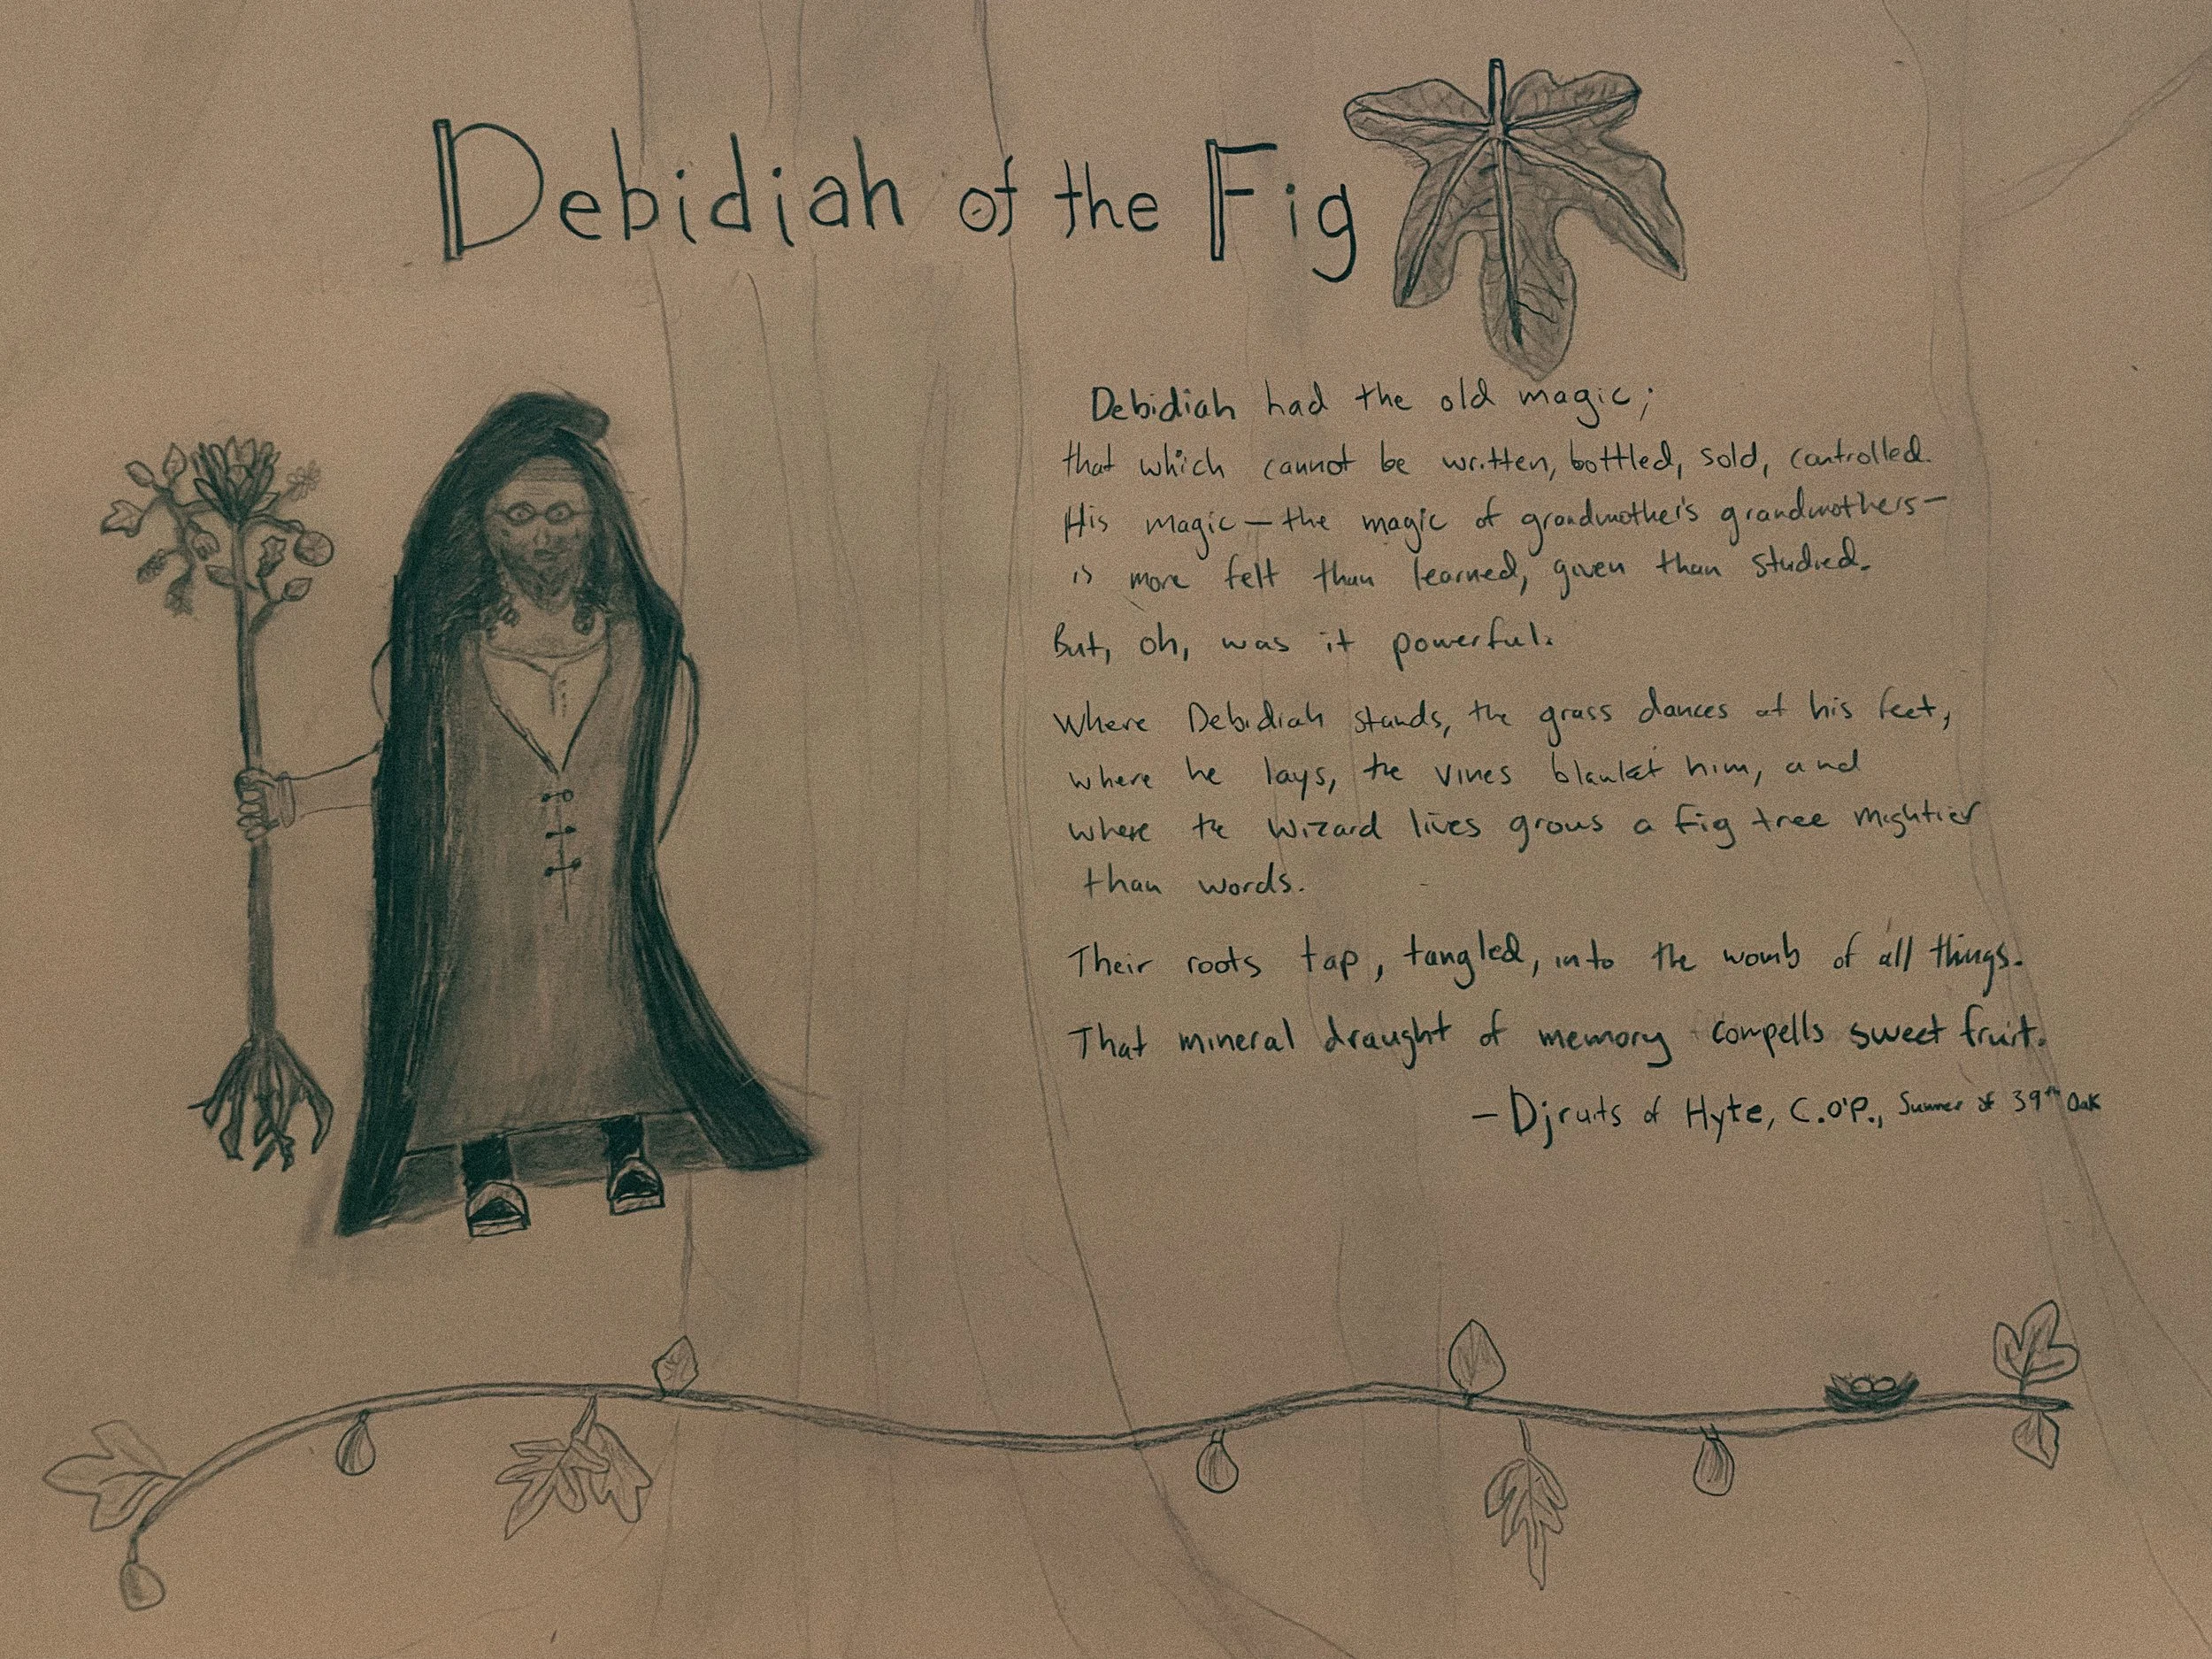 Debidiah of the Fig
Debidiah had the old magic;
that which cannot be written, bottled, sold, controlled.
His magic — the magic of grandmother's grandmothers —
is more felt than learned, given than studied.
But, oh, was it powerful.
Where Debidiah stands, the grass dances at his feet,
where he lays, the vines blanket him, and
where the Wizard lives grows a fig tree mightier
than words.
Their roots tap, tangled, into the womb of all things.
That mineral draught of memory compells sweet fruit.
— Djruits of Hyte, C.O'P., Summer of 39th Oak